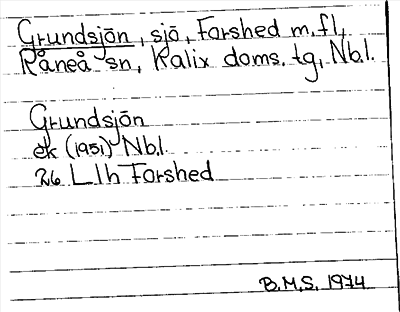 Grundsjön, sjö, Forshed m.fl,
Råneå sn, Kalix doms. tg, Nb.l.
Grundsjön
ek (1951) Nb.l
26 L1h Forshed
B.M.S. 1974